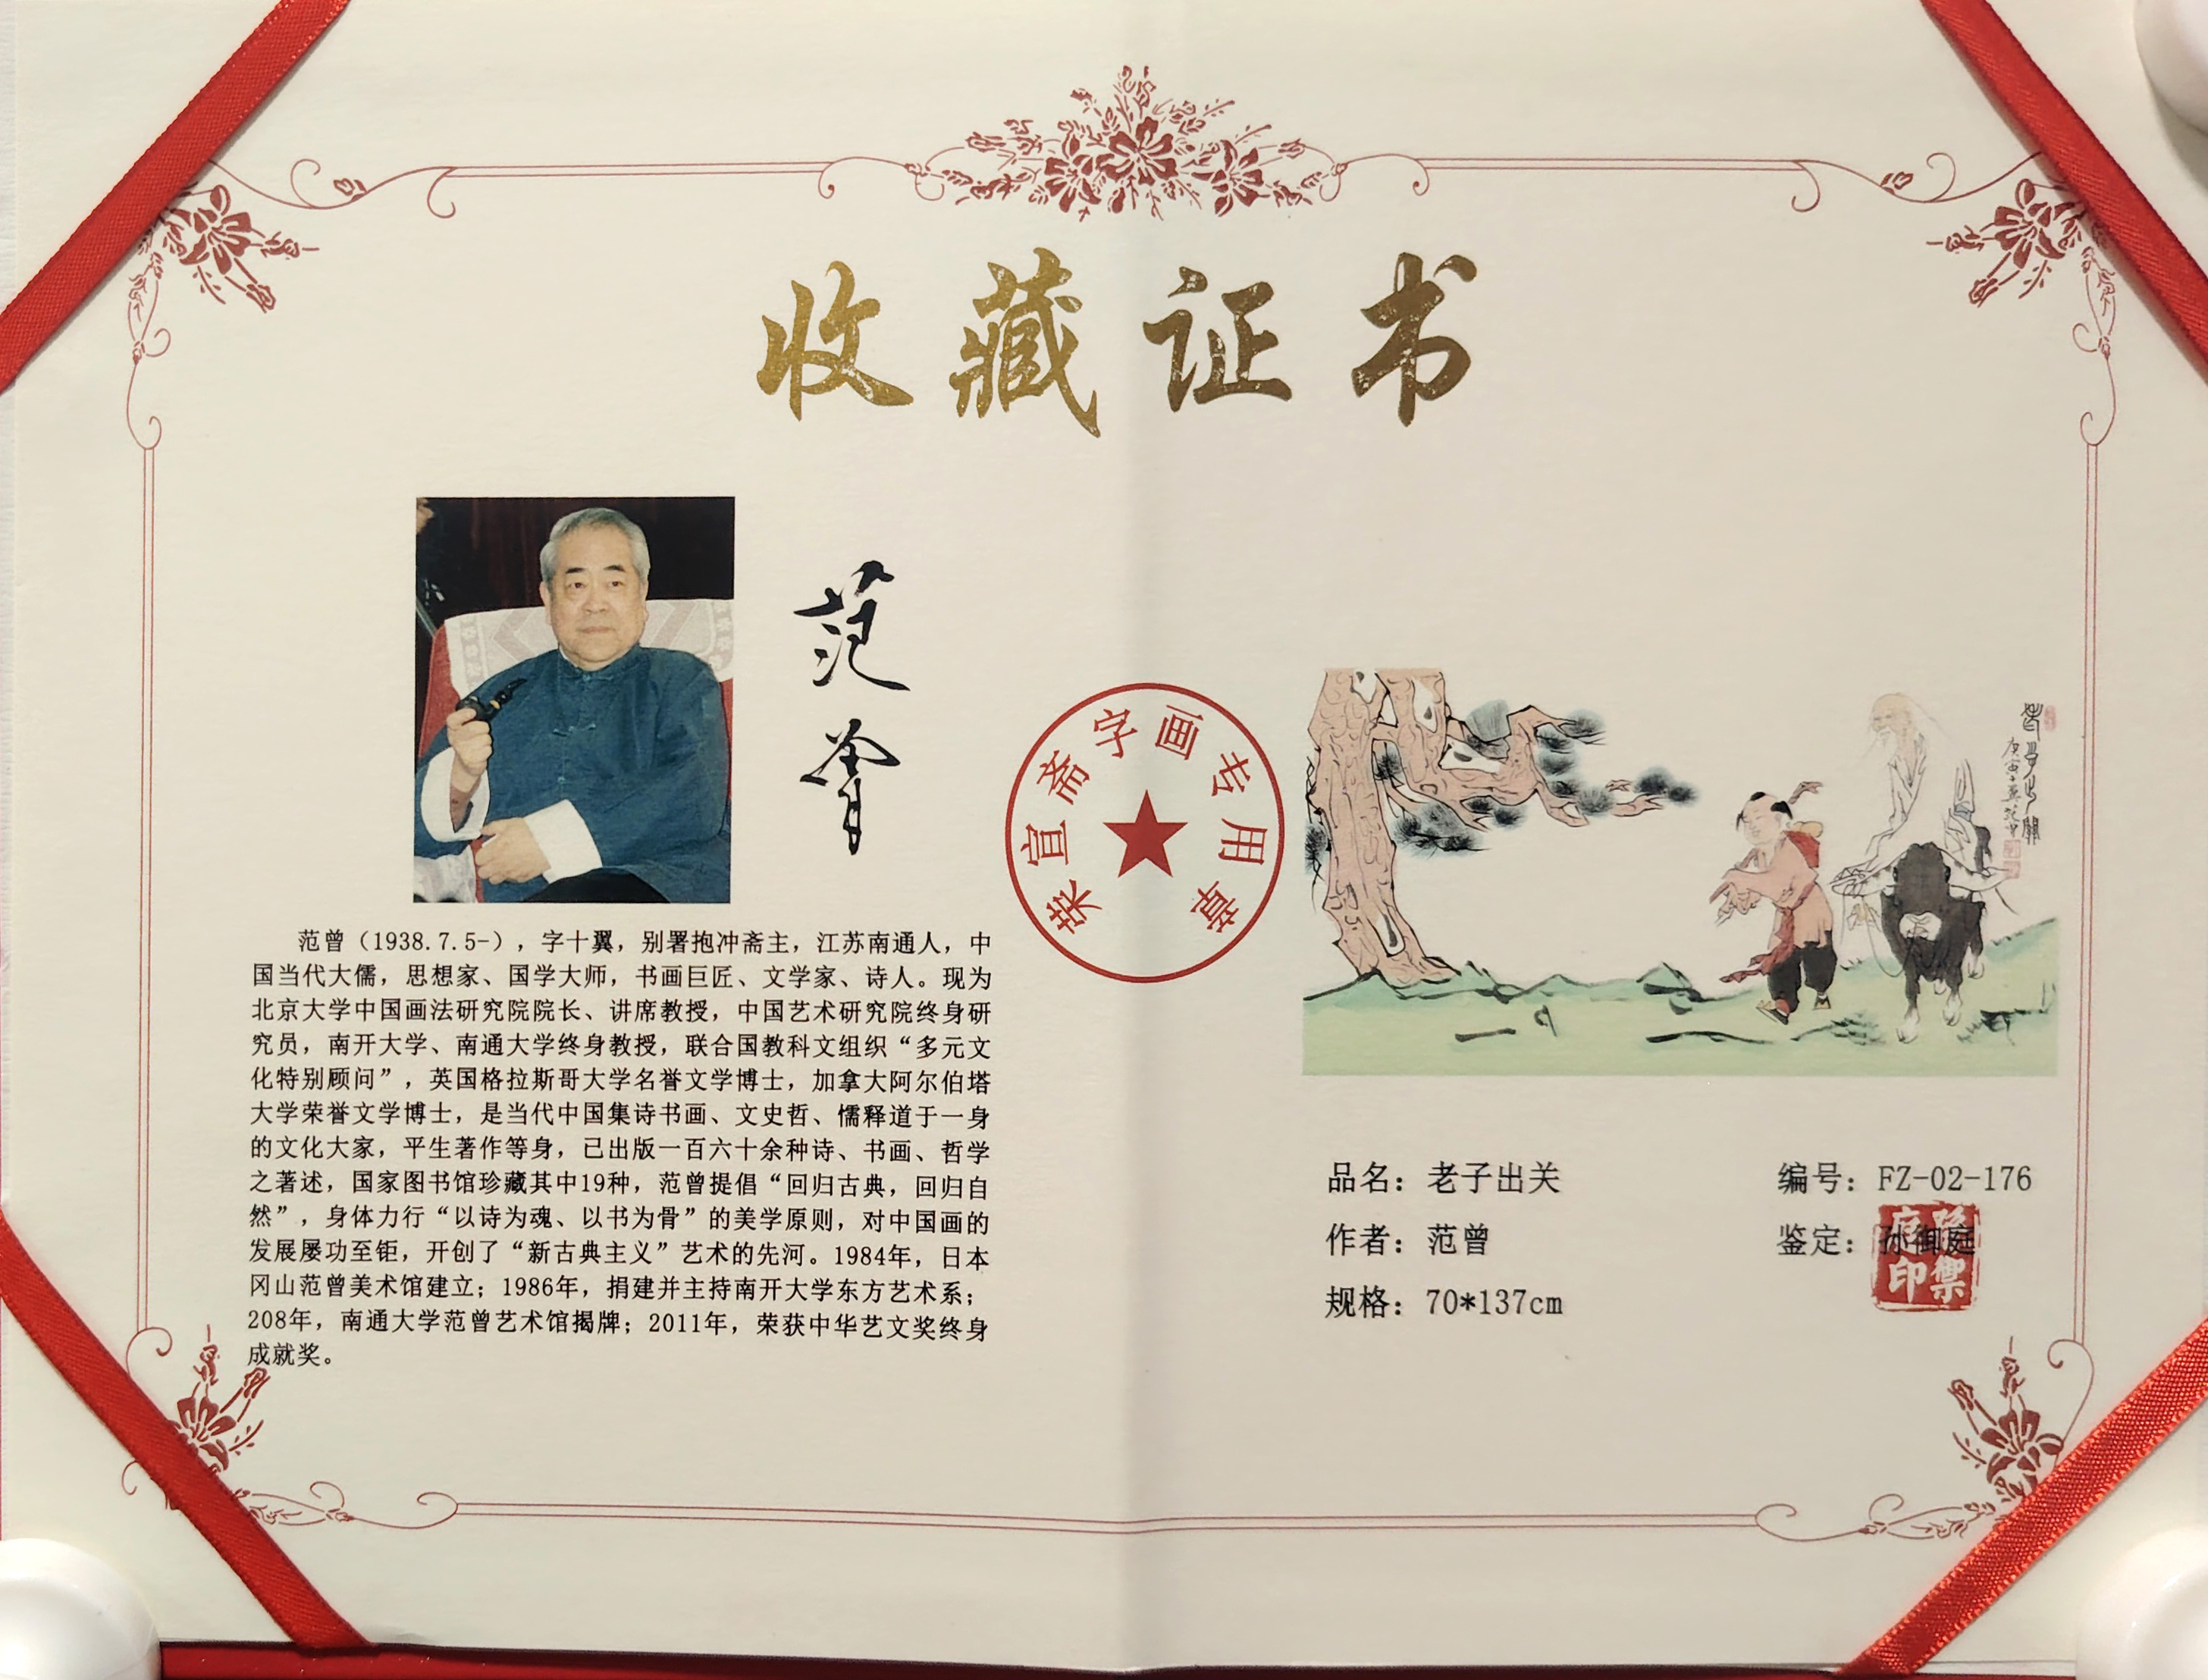 收藏证书
范曾
范曾（1938.7.5-），字十翼，别署抱冲斋主，江苏南通人，中
国当代大儒，思想家、国学大师，书画巨匠、文学家、诗人。现为
北京大学中国画法研究院院长、讲席教授，中国艺术研究院终身研
究员，南开大学、南通大学终身教授，联合国教科文组织“多元文
化特别顾问”，英国格拉斯哥大学名誉文学博士，加拿大阿尔伯塔
大学荣誉文学博士，是当代中国集诗书画、文史哲、儒释道于一身
的文化大家，平生著作等身，已出版一百六十余种诗、书画、哲学
之著述，国家图书馆珍藏其中19种，范曾提倡“回归古典，回归自
然”，身体力行“以诗为魂、以书为骨”的美学原则，对中国画的
发展屡功至钜，开创了“新古典主义”艺术的先河。1984年，日本
冈山范曾美术馆建立；1986年，捐建并主持南开大学东方艺术系；
208年，南通大学范曾艺术馆揭牌；2011年，荣获中华艺文奖终身
成就奖。
荣宣斋字画专用章
老子出关
庚寅十翼范曾
品名：老子出关
编号：FZ-02-176
作者：范曾
鉴定：孙御庭
规格：70*137cm